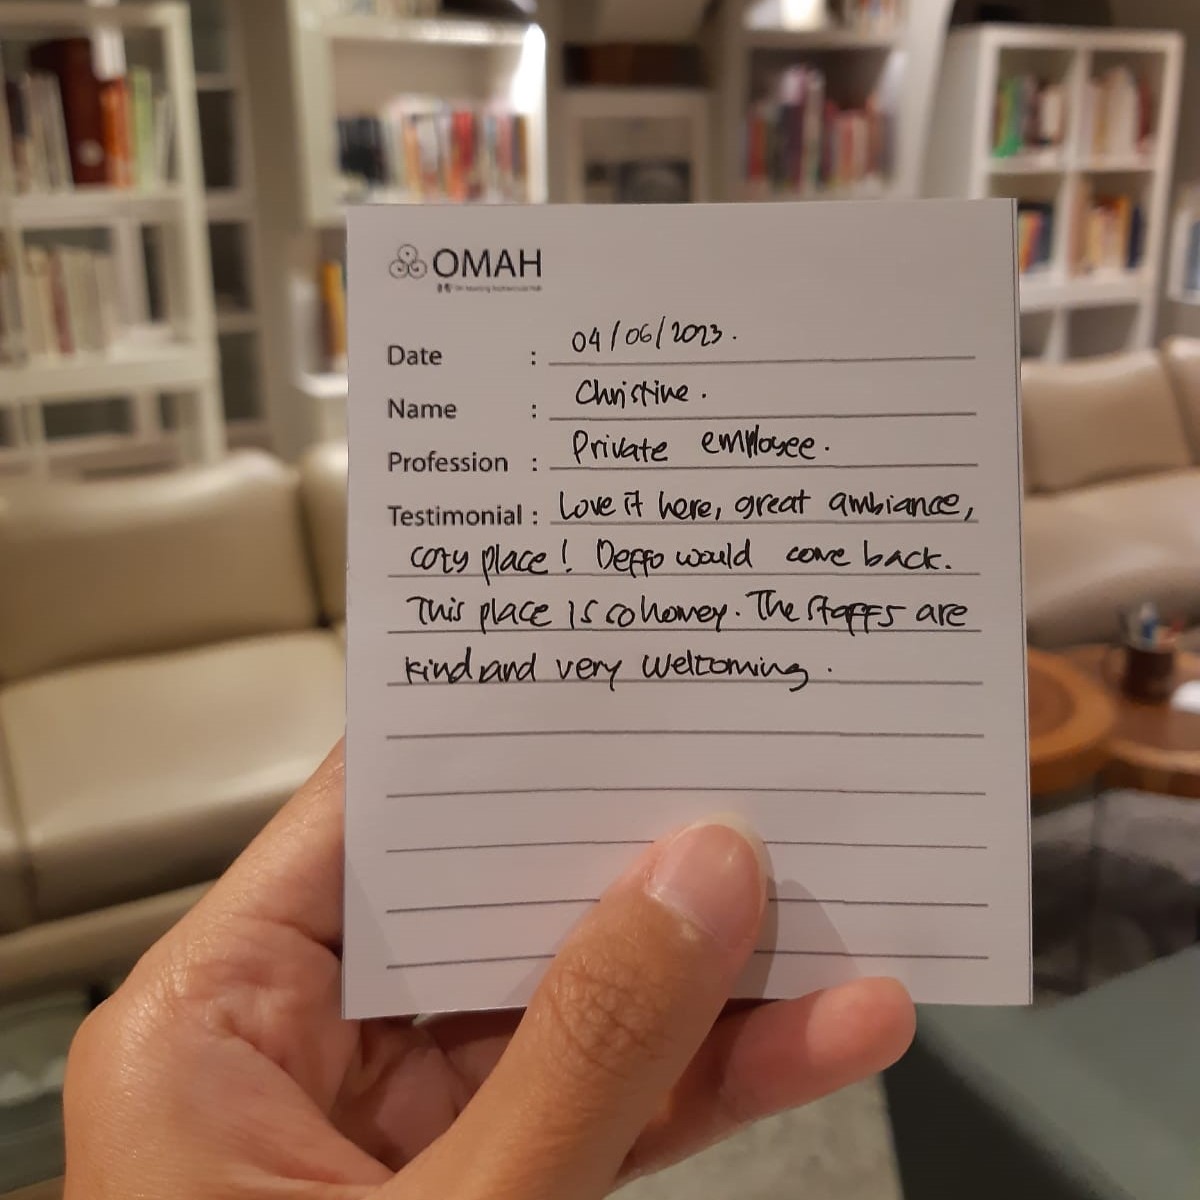 OMAH
Date : 04/06/2023.
Name : Christine.
Profession : Private employee.
Testimonial : Love it here, great ambiance,
cozy place! Deffo would come back.
This place is so homey. The staffs are
kind and very welcoming.